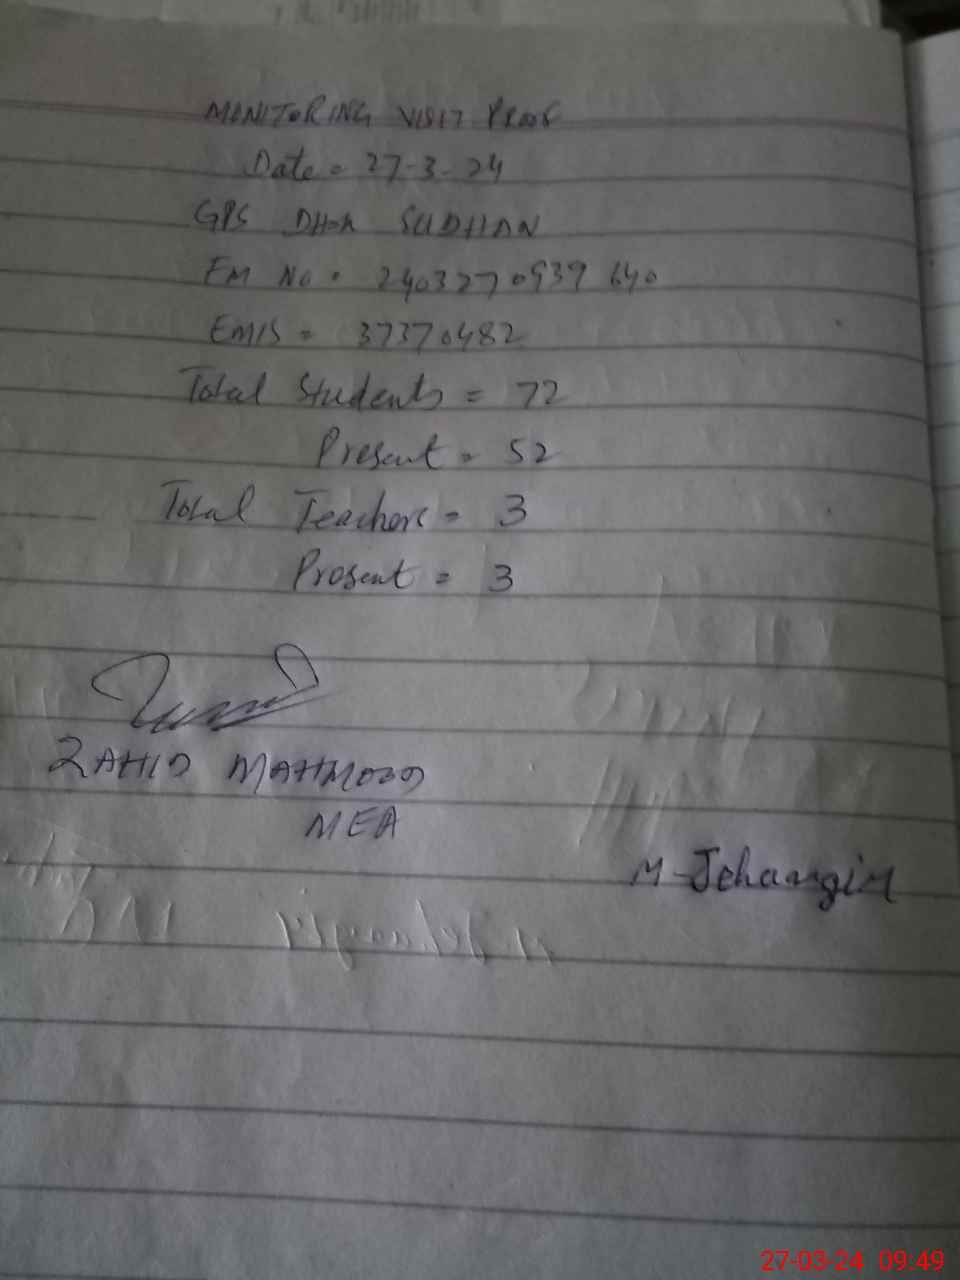 MONITORING VISIT PROOF
Date = 27-3-24
GPS DHOK SUDHAN
EM No. 240327 0939 640
EMIS = 37370482
Total Students = 72
Present = 52
Total Teachers = 3
Present = 3
ZAHID MAHMOOD
MEA
M-Jehangir
27-03-24 09:49